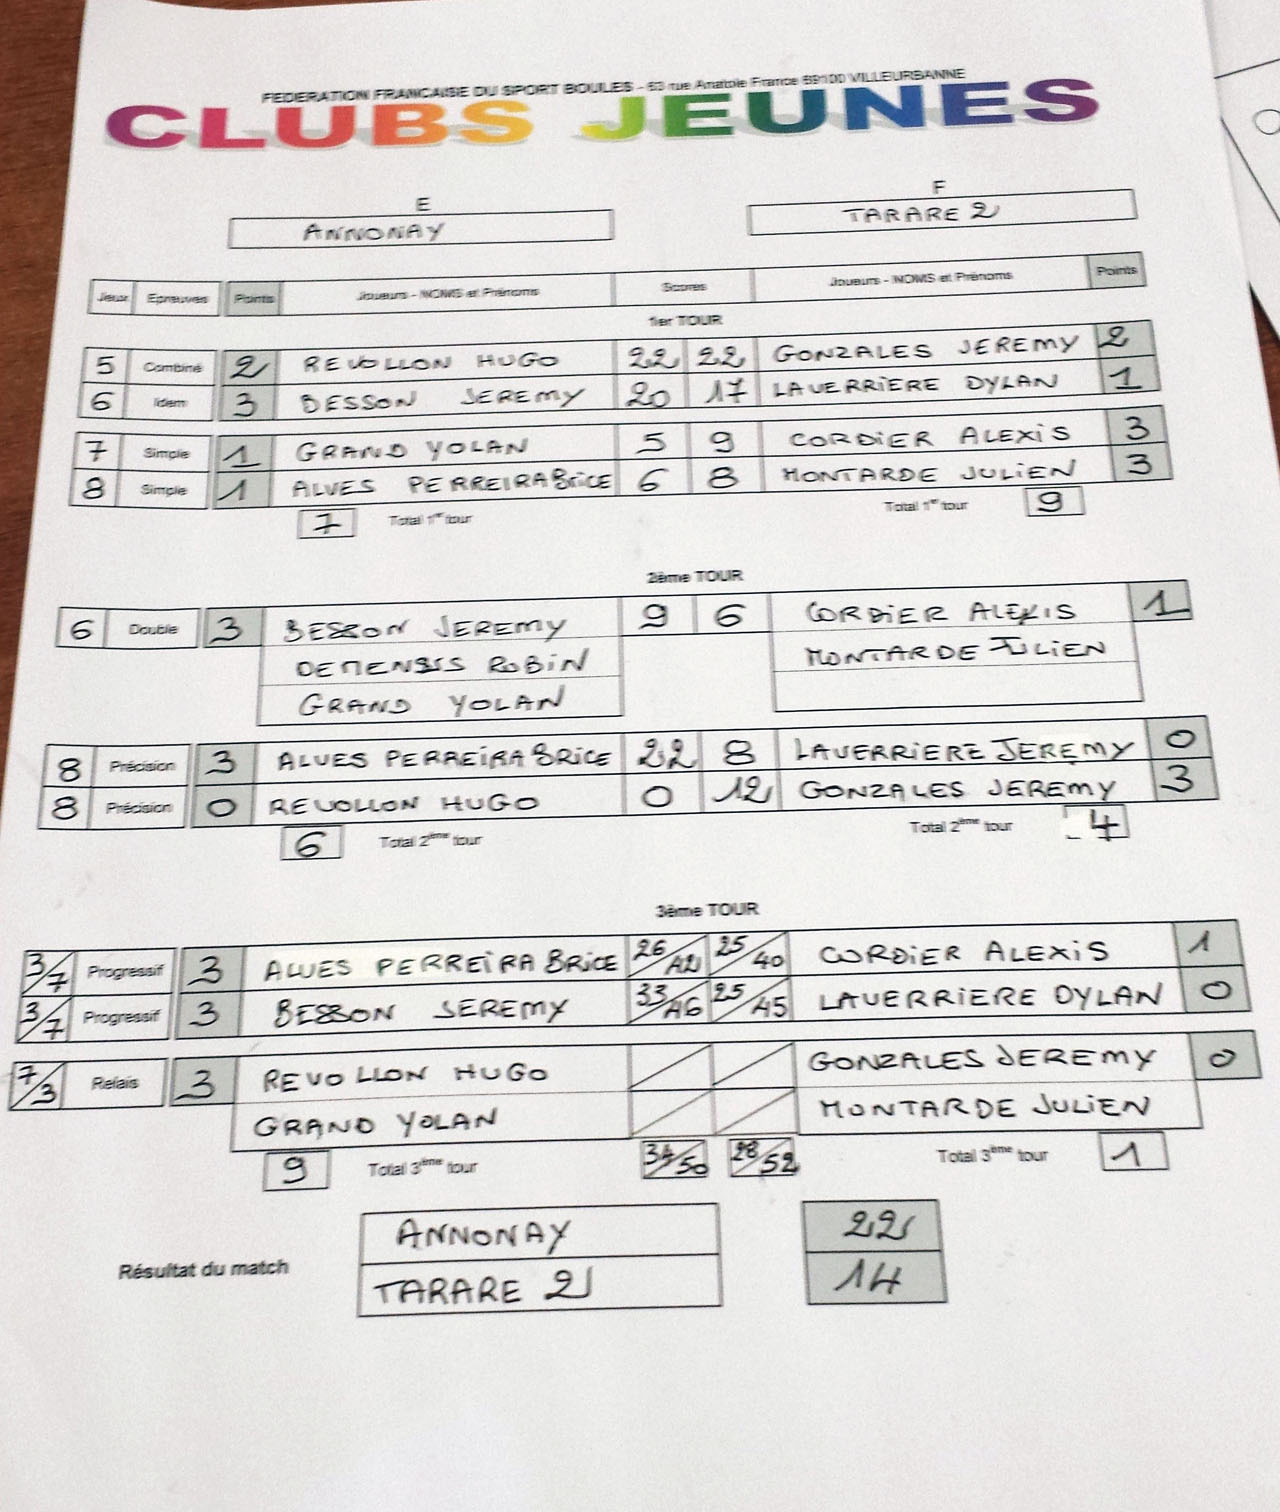 FEDERATION FRANCAISE DU SPORT BOULES - 63 rue Anatole France 69100 VILLEURBANNE
CLUBS JEUNES
E F
ANNONAY TARARE 2
Jeux Epreuves Points Joueurs - NOMS et Prénoms Scores Joueurs - NOMS et Prénoms Points
1er TOUR
5 Combiné 2 REVOLLON HUGO 22 22 GONZALES JEREMY 2
6 Idem 3 BESSON JEREMY 20 17 LAVERRIERE DYLAN 1
7 Simple 1 GRAND YOLAN 5 9 CORDIER ALEXIS 3
8 Simple 1 ALVES PERREIRA BRICE 6 8 MONTARDE JULIEN 3
7 Total 1er tour Total 1er tour 9
2ème TOUR
6 Double 3 BESSON JEREMY 9 6 CORDIER ALEXIS 1
DEMENSIS ROBIN MONTARDE JULIEN
GRAND YOLAN
8 Précision 3 ALVES PERREIRA BRICE 22 8 LAVERRIERE JEREMY 0
8 Précision 0 REVOLLON HUGO 0 12 GONZALES JEREMY 3
6 Total 2ème tour Total 2ème tour 4
3ème TOUR
3/7 Progressif 3 ALVES PERREIRA BRICE 26/42 25/40 CORDIER ALEXIS 1
3/7 Progressif 3 BESSON JEREMY 33/46 25/45 LAVERRIERE DYLAN 0
7/3 Relais 3 REVOLLON HUGO GONZALES JEREMY 0
GRAND YOLAN MONTARDE JULIEN
9 Total 3ème tour 34/50 28/52 Total 3ème tour 1
Résultat du match
ANNONAY 22
TARARE 2 14